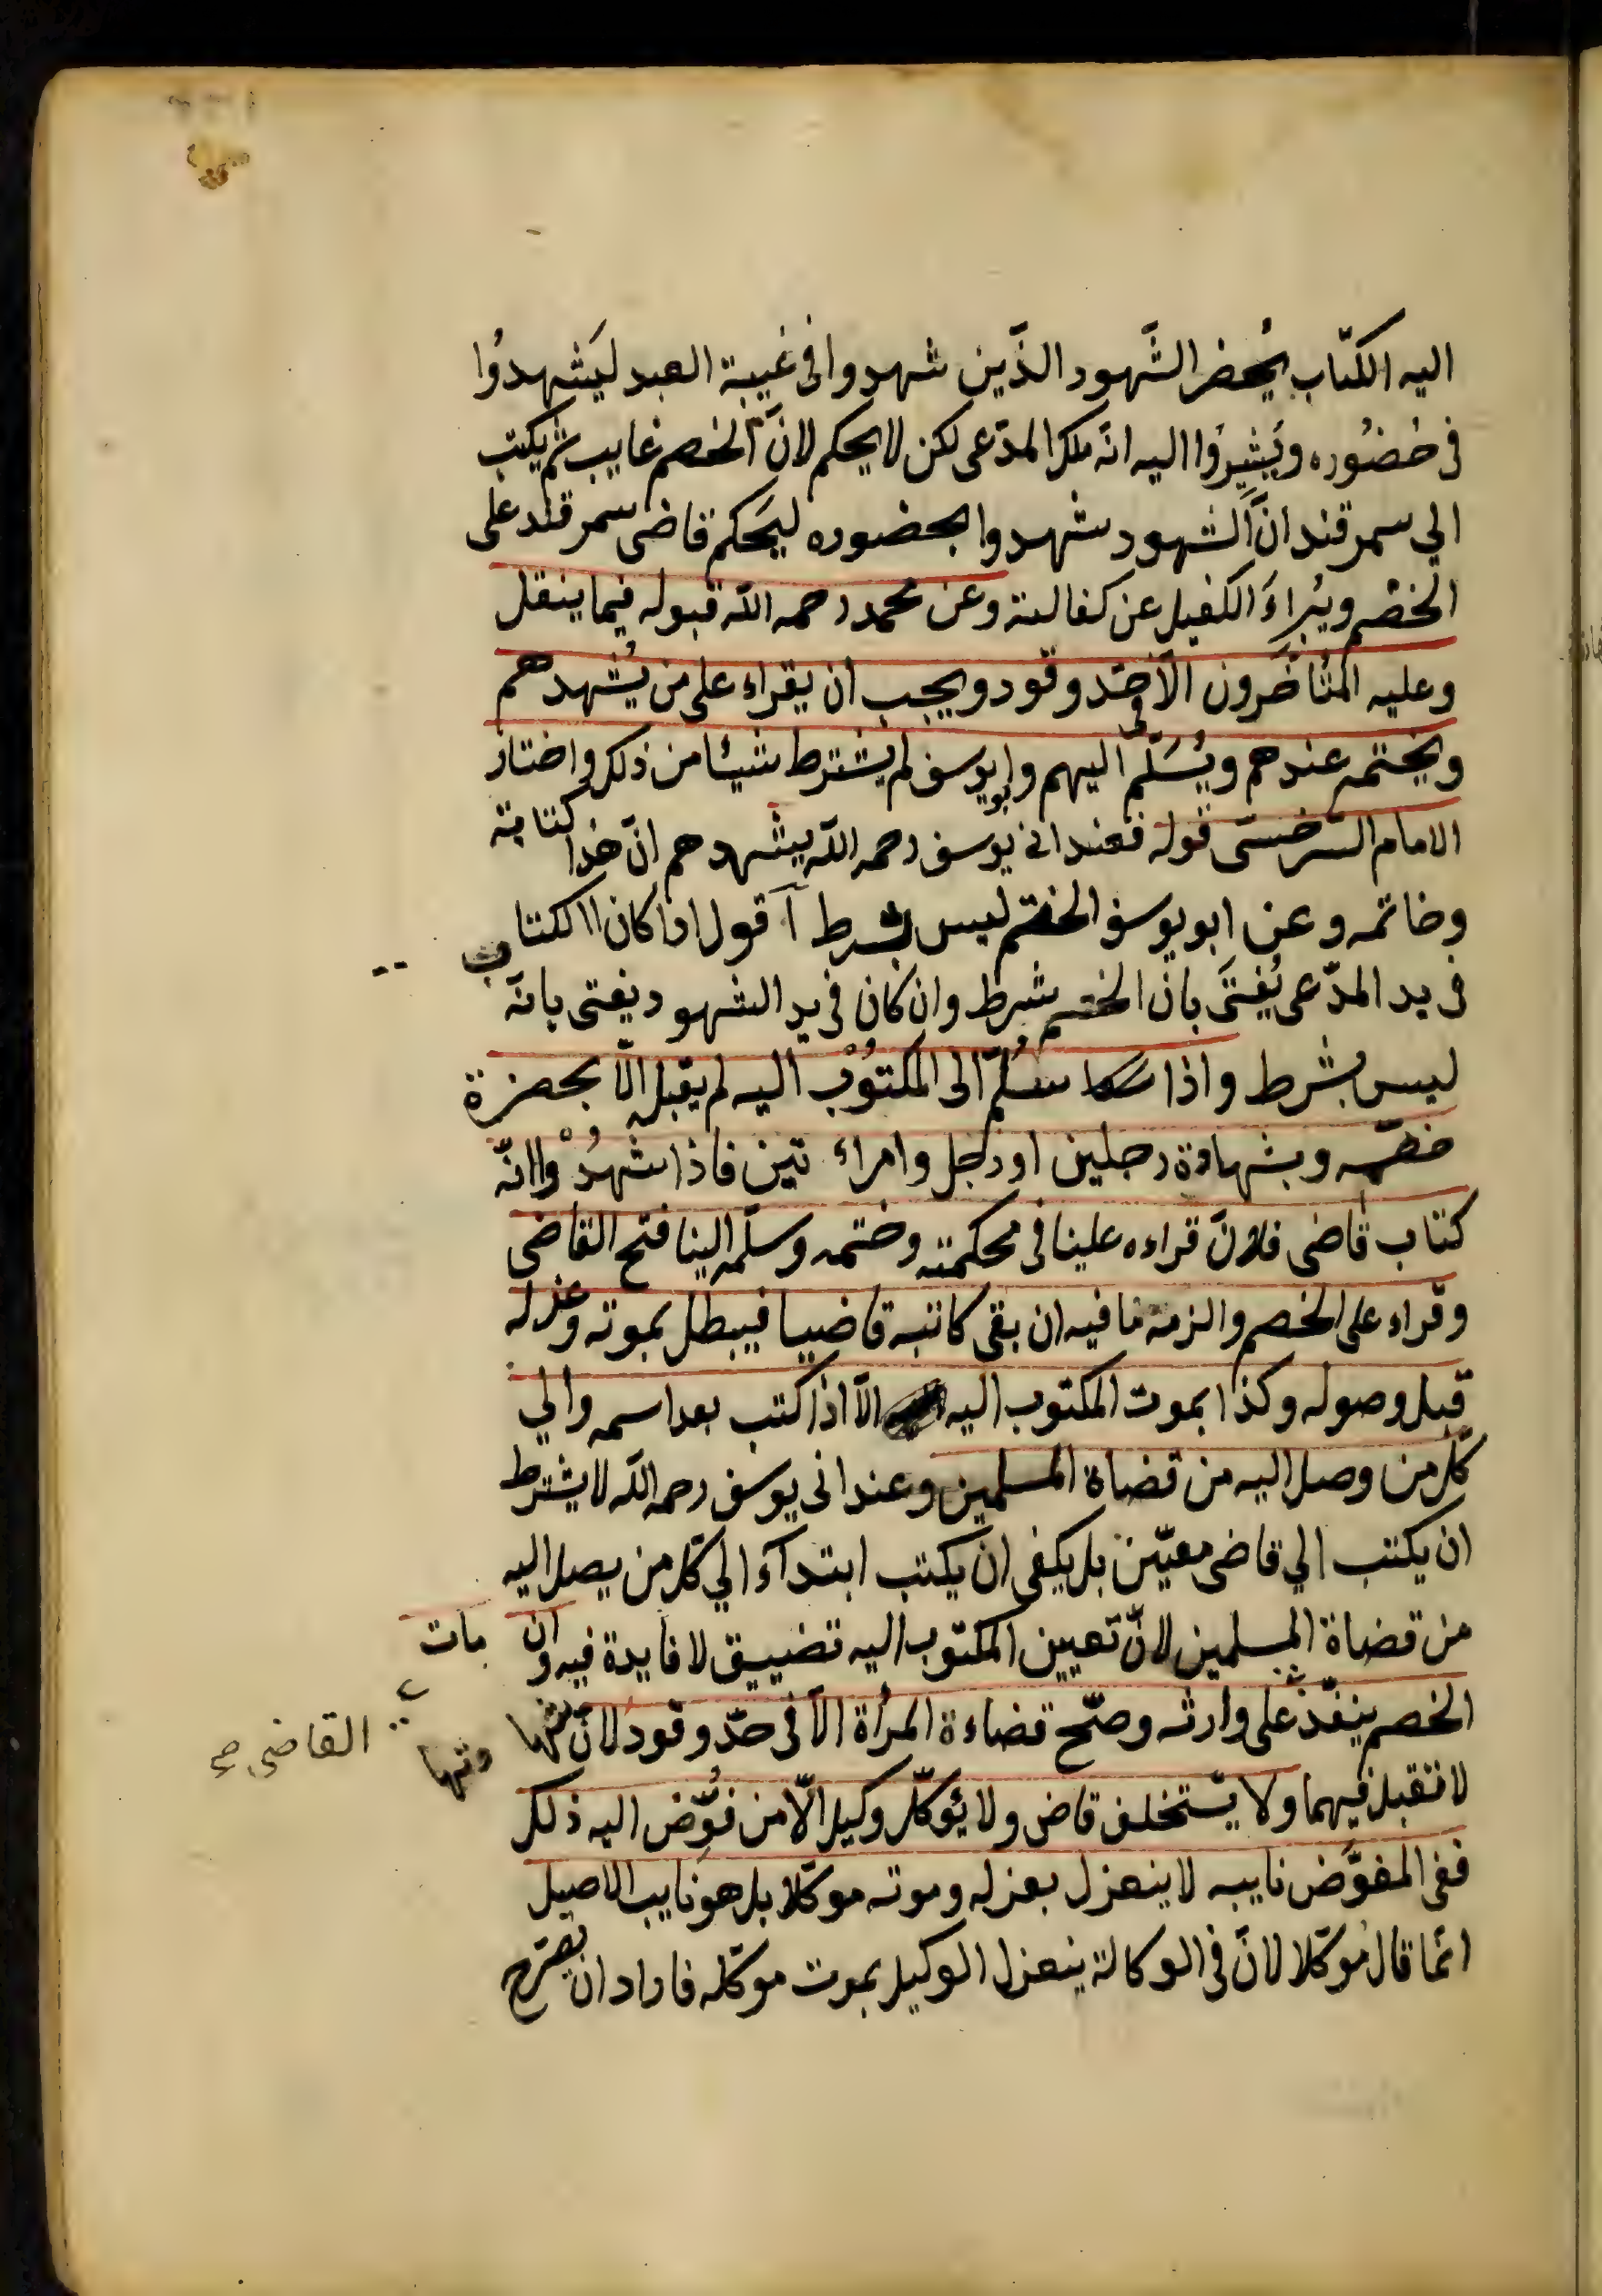 اليه الكتاب يُحضر الشَّهود الذَّين شهدوا فى غيبة العبد ليَشهدوُا
فى حُضوُره ويَشيِروُا اليه انّه ملك المدّعى لكن لا يحكم لانَّ الخصم غايب ثم يكتب
الي سمرقند انَّ الشهود شهدوا بحضوره ليَحكم قاضى سمرقند على
الخصْم ويُبراءَ الكفيل عن كفالته وعن محمد رحمه اللّه قبوله فيما ينقل
وعليه المتأخرون الّا فى حّد وقود ويجب ان يقراء على من يُشهدهم
ويختمه عندهم ويُسَلّم اليهم وابويوسف لم يشترط شيئا من ذلك واختار
الامام السّرخسى قوله فعند ابى يوُسف رحمه اللّه يشهدهم انّ هذا كتابته
وخاتمه وعن ابو يوسف الختم ليس بشرط أقول اذا كان االكتاب
فى يد المدّعى يُفتىَ بانّ الختم شرط وان كان فى يد الشهود يفتى بانّه
ليس بشرط واذا سُلّم الى المكتوُب اليه لم يقبله الّا بحضرة
خصمه وبشهادة رجلين او رجل وامراء تين فاذا شهدُ وْاانّه
كتاب قاضى فلانّ قراءه علينا فى محكمته وختمه وسلّمه الينا فتح القاضى
وقراء على الخصم والزمه ما فيه ان بقى كاتبه قاضيا فيبطل بموته وعزله
قبل وصوله وكذا بموت المكتوب اليه الّا اذا كتب بعد اسمه والي
كلّ من وصل اليه من قضاة المسلمين وعند ابى يوسف رحمه اللّه لا يشترط
ان يكتب الي قاضى معيّن بل يكفى ان يكتب ابتدآء الي كلّ من يصل اليه
من قضاة المسلمين لانّ تعيين المكتوب اليه تضييق لا فايدة فيه وان مات
الخصم ينفّذ على وارثه وصّح قضاءة المرأة الّا فى حدّ وقود لانّ
القاضى صح
لا تقبل فيهما ولا يستخلف قاض ولا يُوكلّ وكيل الّا من فُوِّض اليه ذلك
ففى المفوَّض نايبه لا ينعزل بعزله وموته موكّلا بل هو نايب الاصيل
انّما قال مُوكّلا لانّ فى الوكالة ينعزل الوكيل بموت موكّله فاراد ان